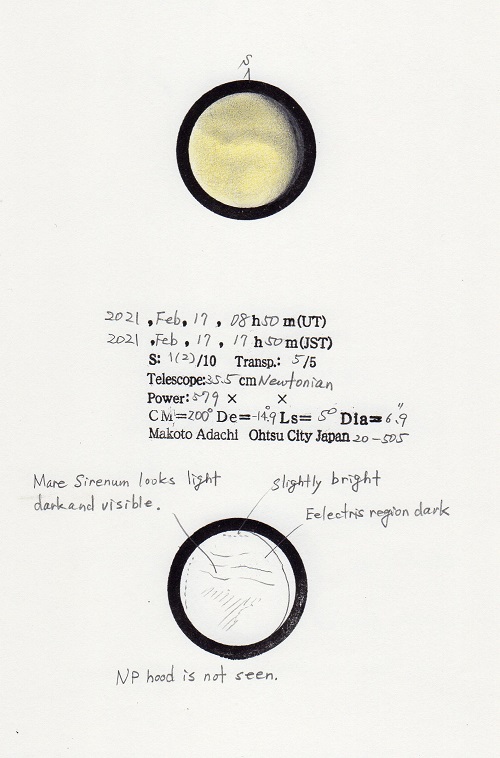 S
2021 , Feb, 17 , 08h50m(UT)
2021 , Feb, 17 , 17h50m(JST)
S: 1(2)/10 Transp.: 5/5
Telescope:35.5cm Newtonian
Power: 579 × ×
CM=200° De=-14.9° Ls= 5° Dia=6."9
Makoto Adachi Ohtsu City Japan 20-505
Mare Sirenum looks light
dark and visible.
slightly bright
Eelectris region dark
NP hood is not seen.